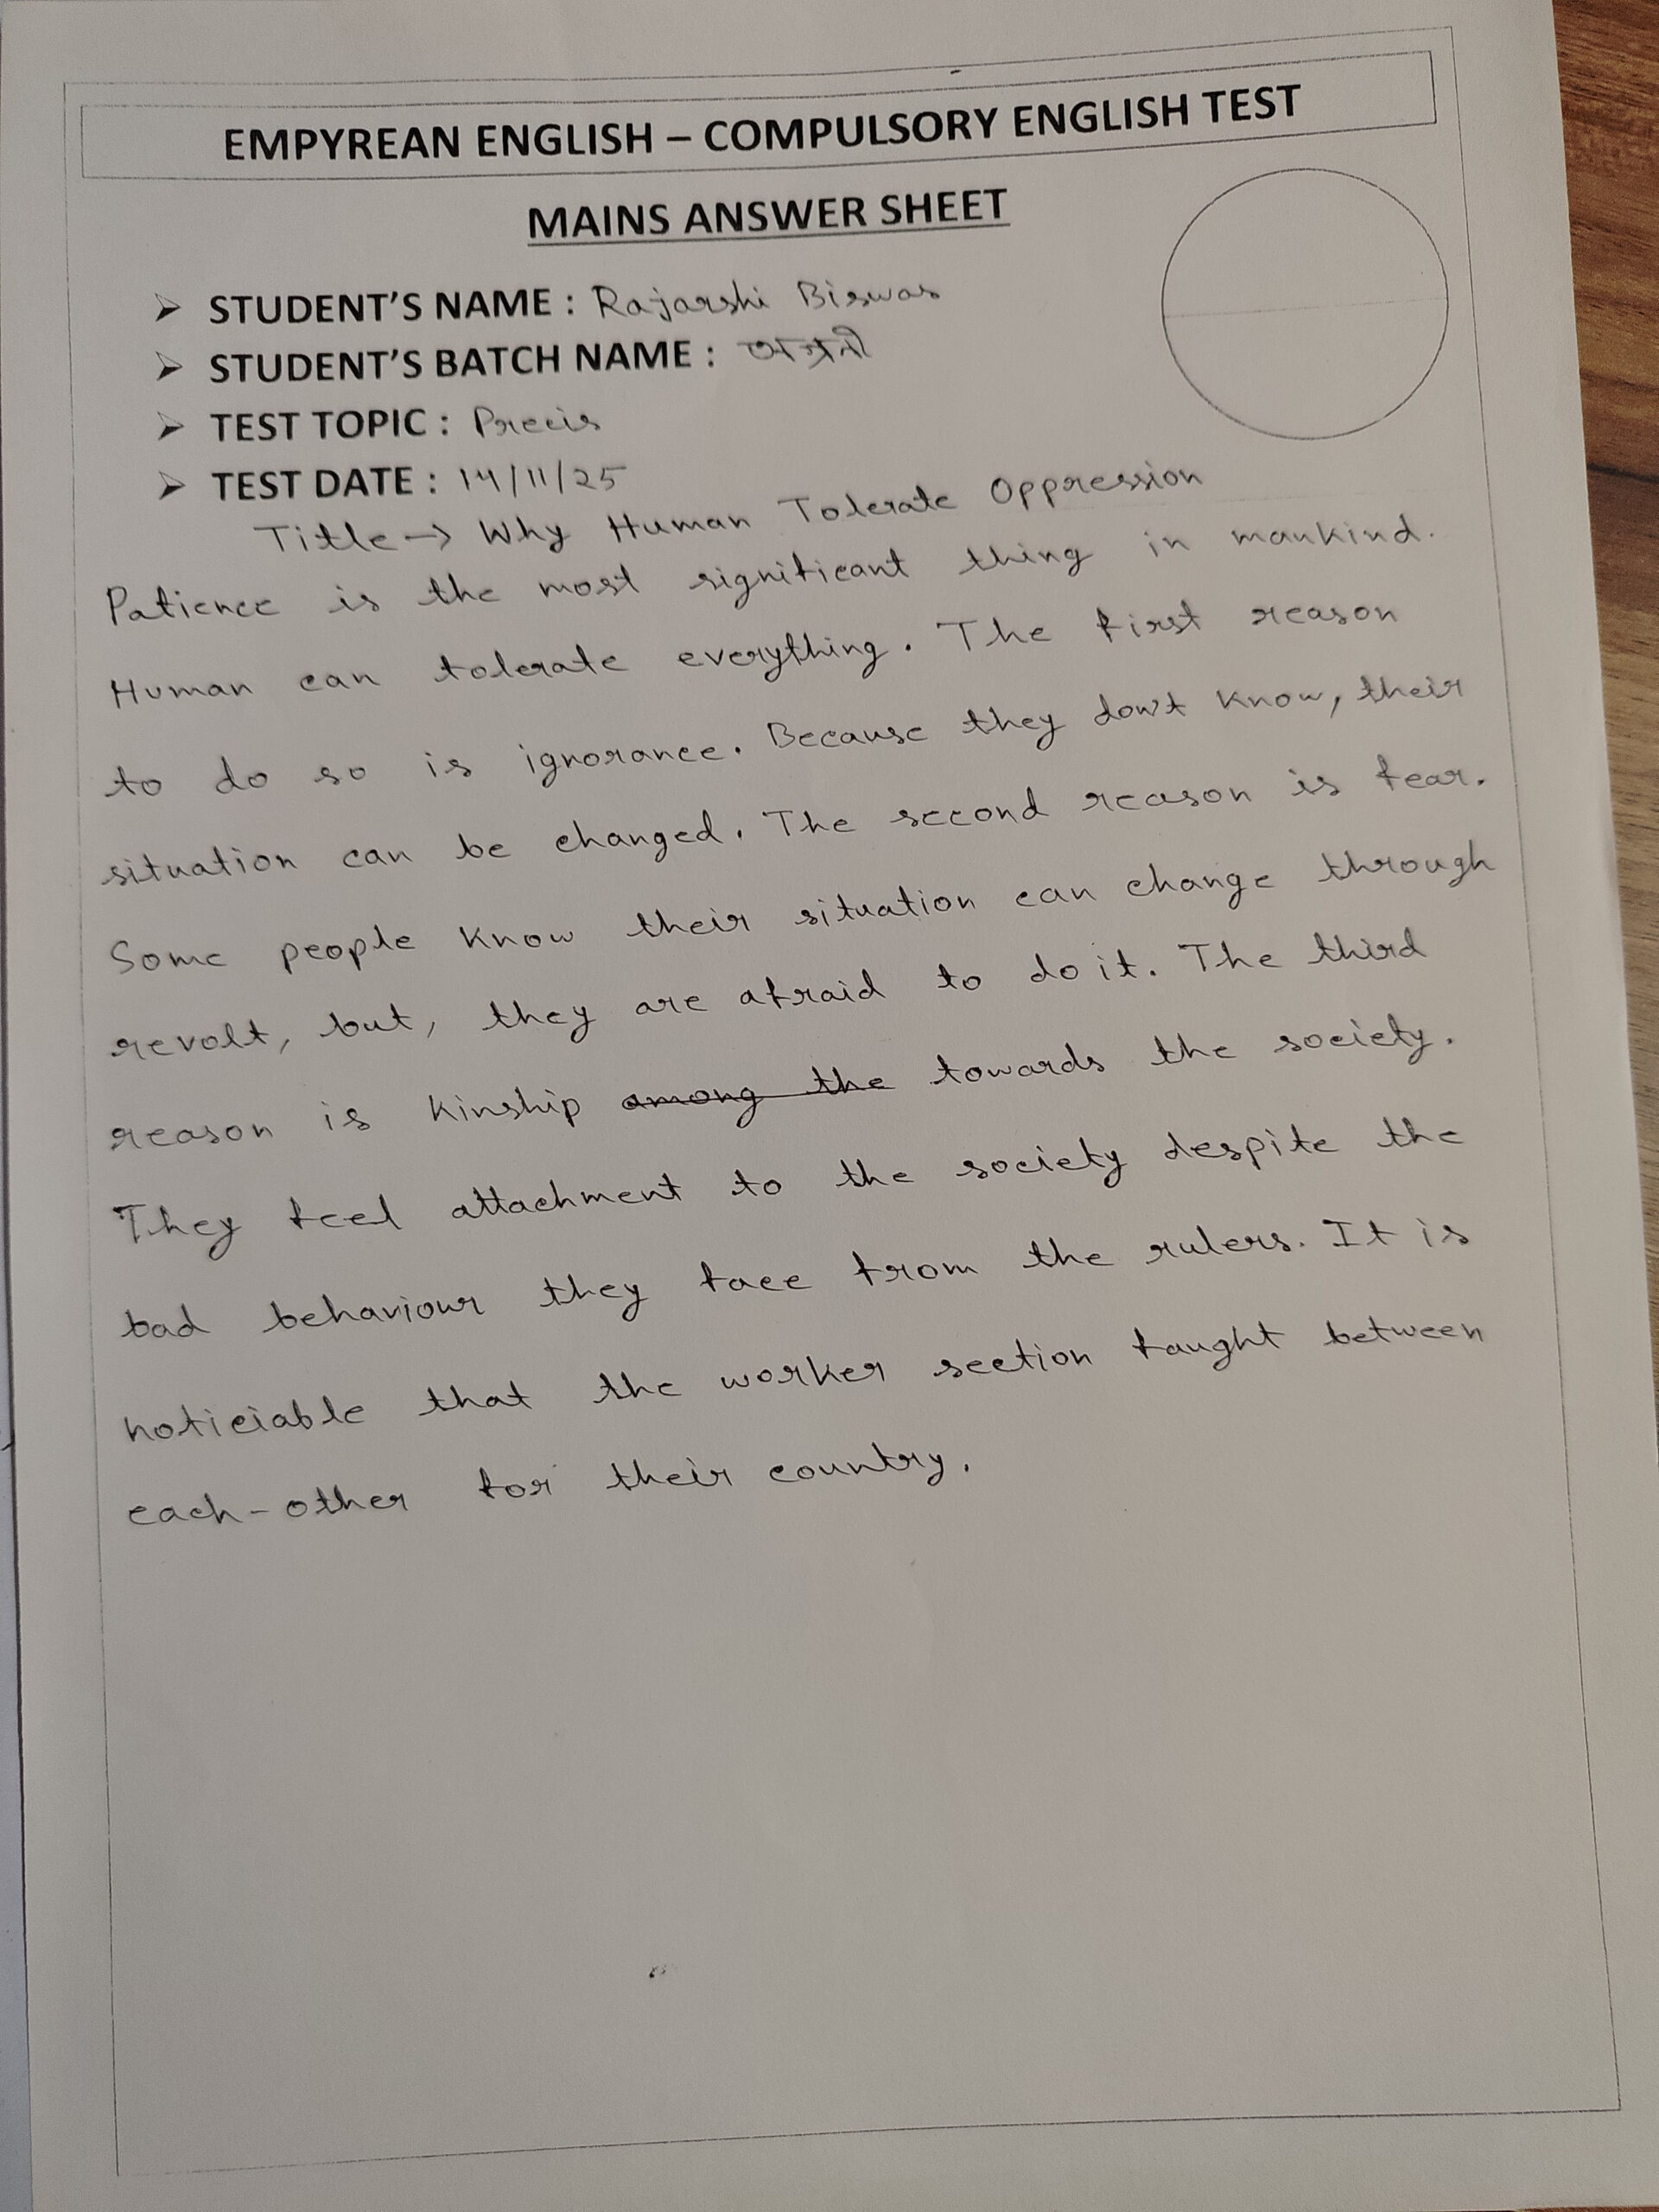 EMPYREAN ENGLISH – COMPULSORY ENGLISH TEST
MAINS ANSWER SHEET
➢ STUDENT'S NAME : Rajarshi Biswas
➢ STUDENT'S BATCH NAME :
➢ TEST TOPIC : Precis
➢ TEST DATE : 14/11/25
Title → Why Human Tolerate Oppression
Patience is the most significant thing in mankind.
Human can tolerate everything. The first reason
to do so is ignorance. Because they don't know, their
situation can be changed. The second reason is fear.
Some people know their situation can change through
revolt, but, they are afraid to do it. The third
reason is kinship among the towards the society.
They feel attachment to the society despite the
bad behaviour they face from the rulers. It is
noticiable that the worker section faught between
each-other for their country.